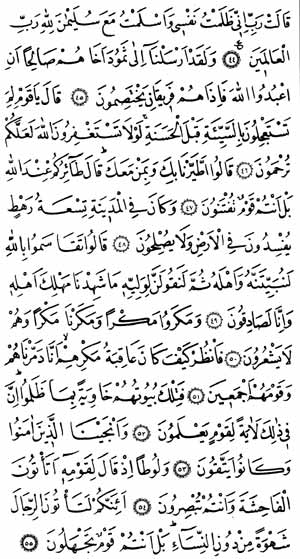 قَالَتْ رَبِّ اِنّ۪ي ظَلَمْتُ نَفْس۪ي وَاَسْلَمْتُ مَعَ سُلَيْمٰنَ لِلّٰهِ رَبِّ
الْعَالَم۪ينَ ﴿٤٤﴾ وَلَقَدْ اَرْسَلْنَٓا اِلٰى ثَمُودَ اَخَاهُمْ صَالِحاً اَنِ
اعْبُدُوا اللّٰهَ فَاِذَا هُمْ فَر۪يقَانِ يَخْتَصِمُونَ ﴿٤٥﴾ قَالَ يَا قَوْمِ لِمَ
تَسْتَعْجِلُونَ بِالسَّيِّئَةِ قَبْلَ الْحَسَنَةِۚ لَوْلَا تَسْتَغْفِرُونَ اللّٰهَ لَعَلَّكُمْ
تُرْحَمُونَ ﴿٤٦﴾ قَالُوا اطَّيَّرْنَا بِكَ وَبِمَنْ مَعَكَۜ قَالَ طَٓائِرُكُمْ عِنْدَ اللّٰهِ
بَلْ اَنْتُمْ قَوْمٌ تُفْتَنُونَ ﴿٤٧﴾ وَكَانَ فِي الْمَد۪ينَةِ تِسْعَةُ رَهْطٍ
يُفْسِدُونَ فِي الْاَرْضِ وَلَا يُصْلِحُونَ ﴿٤٨﴾ قَالُوا تَقَاسَمُوا بِاللّٰهِ
لَنُبَيِّتَنَّهُ وَاَهْلَهُ ثُمَّ لَنَقُولَنَّ لِوَلِيِّه۪ مَا شَهِدْنَا مَهْلِكَ اَهْلِه۪
وَاِنَّا لَصَادِقُونَ ﴿٤٩﴾ وَمَكَرُوا مَكْراً وَمَكَرْنَا مَكْراً وَهُمْ
لَا يَشْعُرُونَ ﴿٥٠﴾ فَانْظُرْ كَيْفَ كَانَ عَاقِبَةُ مَكْرِهِمْۙ اَنَّا دَمَّرْنَاهُمْ
وَقَوْمَهُمْ اَجْمَع۪ينَ ﴿٥١﴾ فَتِلْكَ بُيُوتُهُمْ خَاوِيَةً بِمَا ظَلَمُواۜ اِنَّ
ف۪ي ذٰلِكَ لَاٰيَةً لِقَوْمٍ يَعْلَمُونَ ﴿٥٢﴾ وَاَنْجَيْنَا الَّذ۪ينَ اٰمَنُوا
وَكَانُوا يَتَّقُونَ ﴿٥٣﴾ وَلُوطاً اِذْ قَالَ لِقَوْمِه۪ٓ اَتَأْتُونَ
الْفَاحِشَةَ وَاَنْتُمْ تُبْصِرُونَ ﴿٥٤﴾ اَئِنَّكُمْ لَتَأْتُونَ الرِّجَالَ
شَهْوَةً مِنْ دُونِ النِّسَٓاءِۜ بَلْ اَنْتُمْ قَوْمٌ تَجْهَلُونَ ﴿٥٥﴾